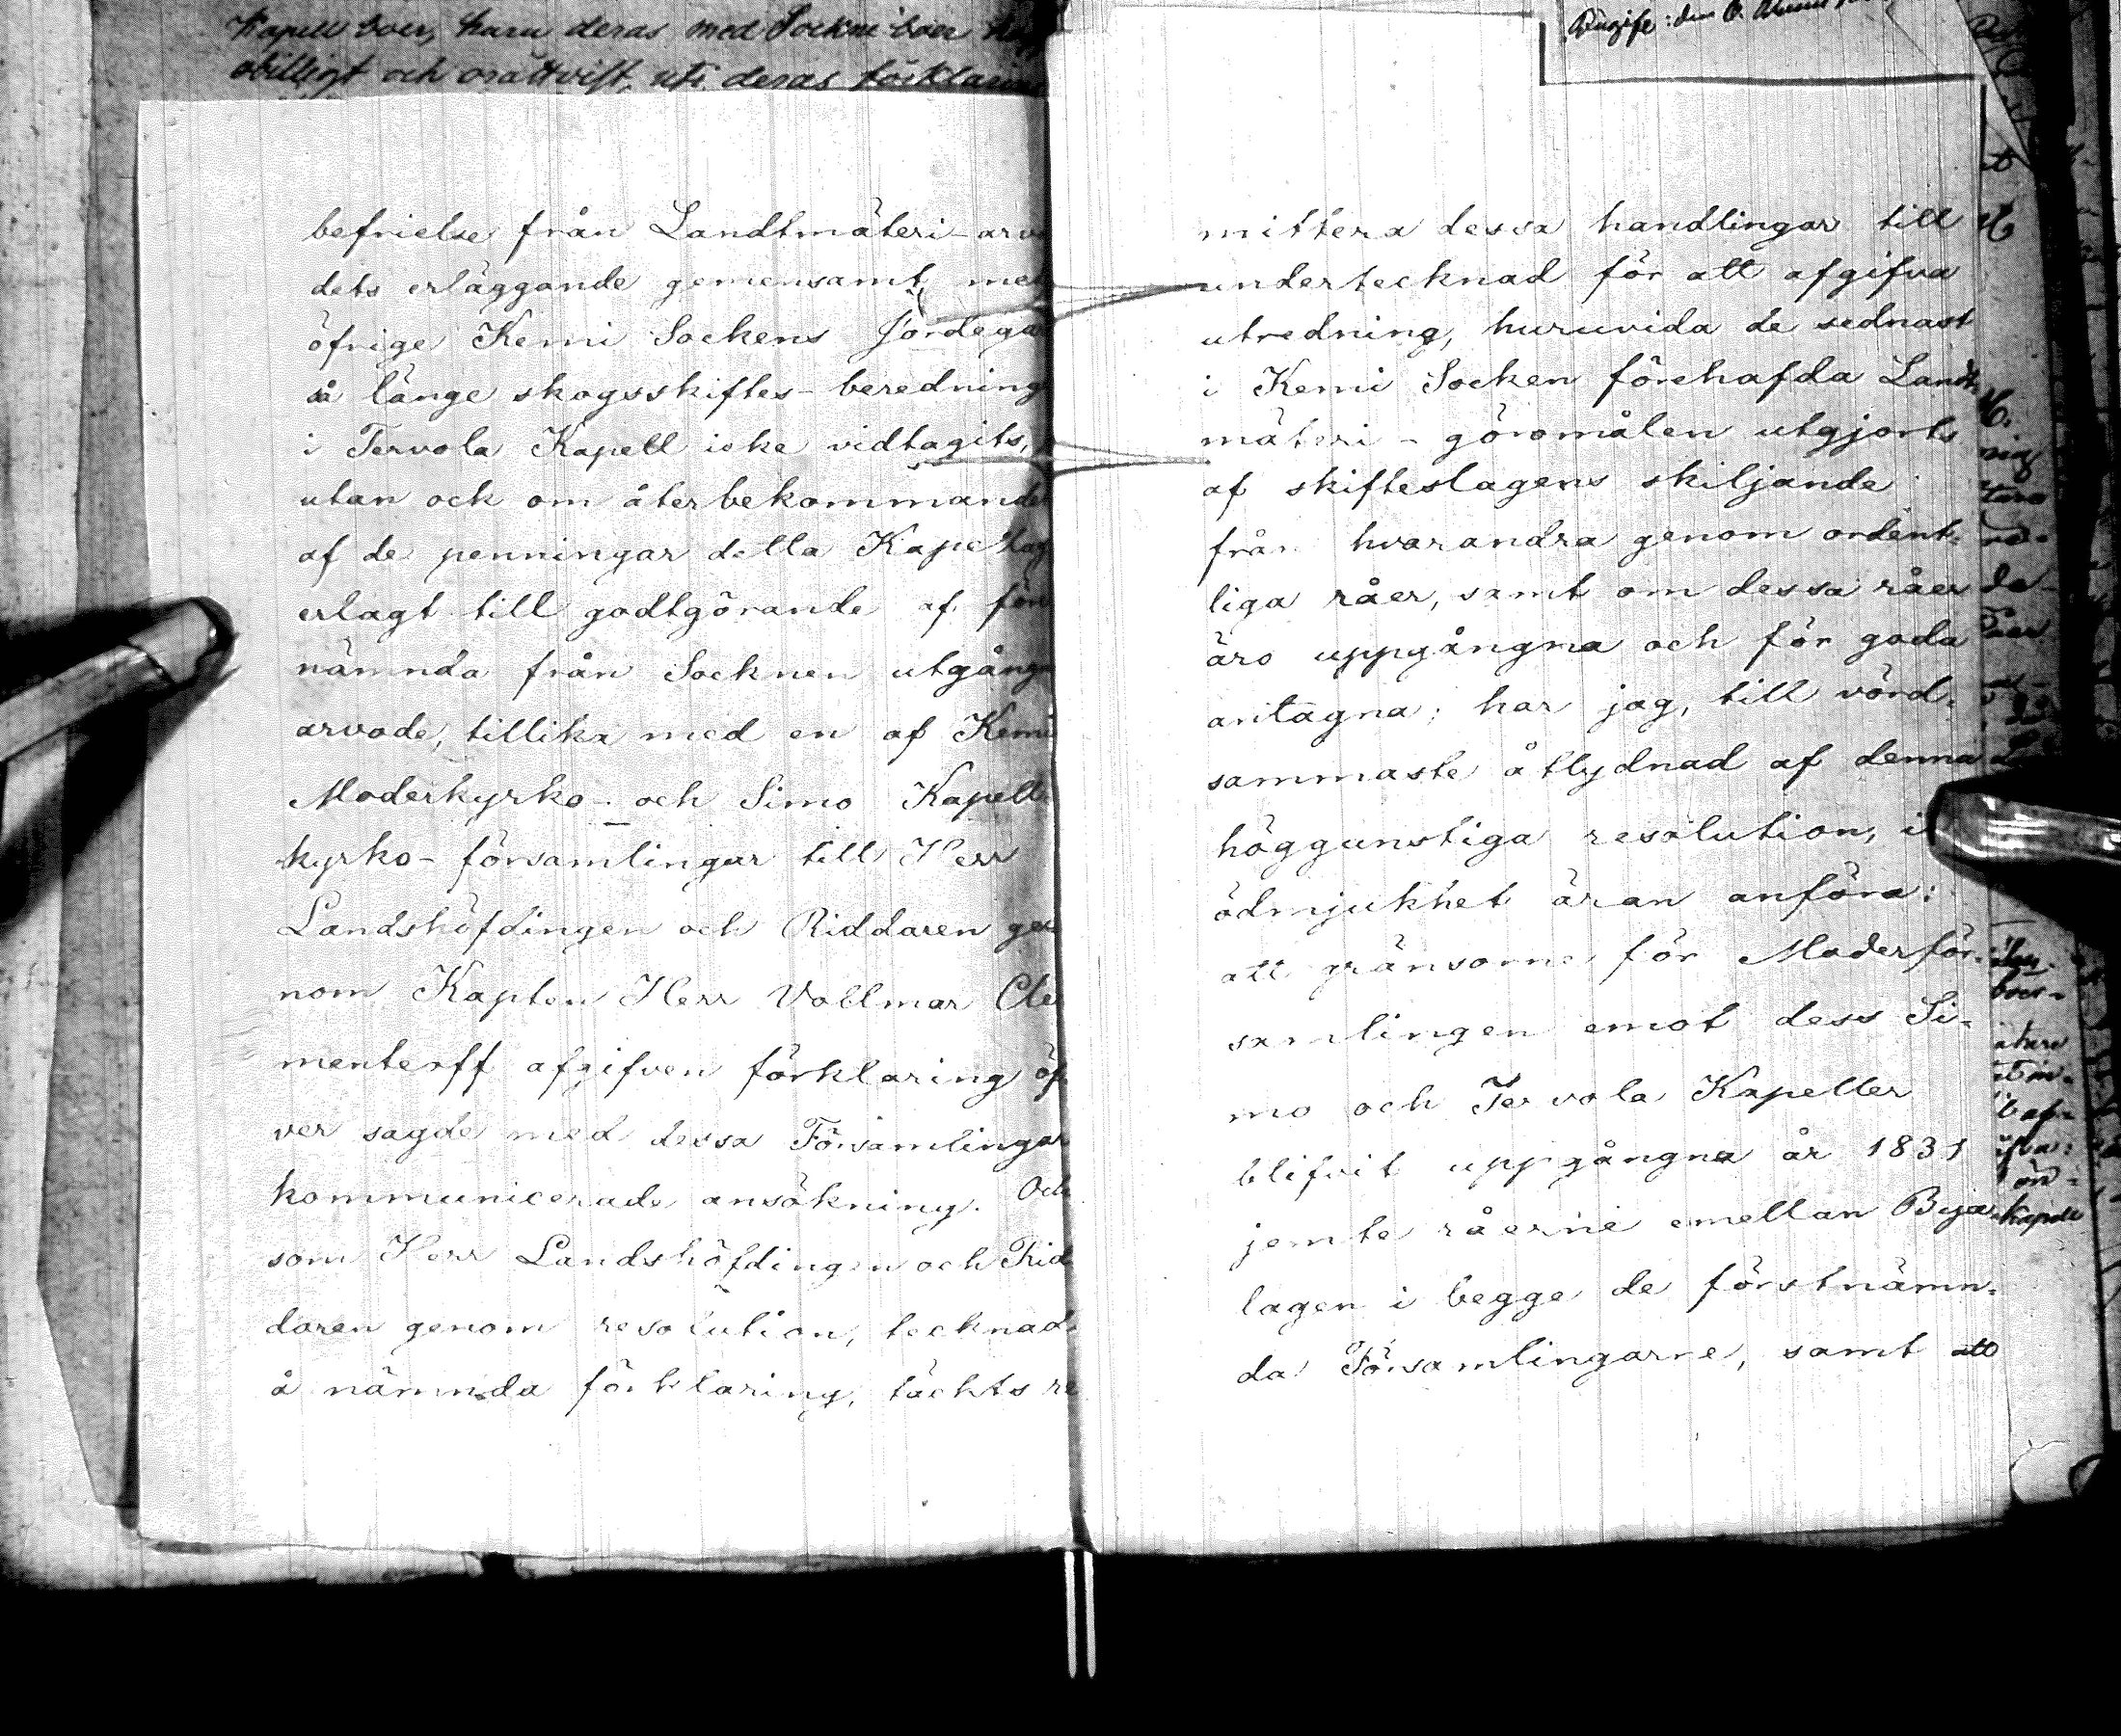 Kapell boer, haru deras med Sockne boer
obilligt och orättvist, uti deras förklaring
befrielse från Landtmäteri-arvo
dets erläggande gemensamt med
öfrige Kemi Sockens Jordega
så länge skogsskiftes-beredning
i Tervola Kapell icke vidtagits,
utan ock om återbekommande
af de penningar detta Kapellag
erlagt till godtgörande af för
nämnda från Socknen utgångna
arvode, tillika med en af Kemi
Moderkyrko- och Simo Kapell
kyrko-församlingar till Herr
Landshöfdingen och Riddaren ge
nom Kapten Herr Vollmar Cle
menteoff afgifven förklaring öf
ver sagde med dessa Församlingar
kommunicerade ansökning. Och
som Herr Landshöfdingen och Rid
daren genom resolution, tecknad
å nämnda förklaring, täckts re
mittera dessa handlingar till
undertecknad för att afgifva
utredning, huruvida de sednast
i Kemi Socken förehafda Landt
mäteri-göromålen utgjorts
af skifteslagens skiljande
från hvarandra genom ordent-
liga råer, samt om dessa råer
äro uppgångna och för goda
antagna; har jag, till vörd-
sammaste åtlydnad af denna
höggunstiga resolution, i
ödmjukhet äran anföra:
att gränsorne för Moderför-
samlingen emot dess Si-
mo och Tervola Kapeller
blifvit uppgångna år 1831
jemte råerne emellan Bya
lagen i begge de förstnämn-
da Församlingarne, samt att